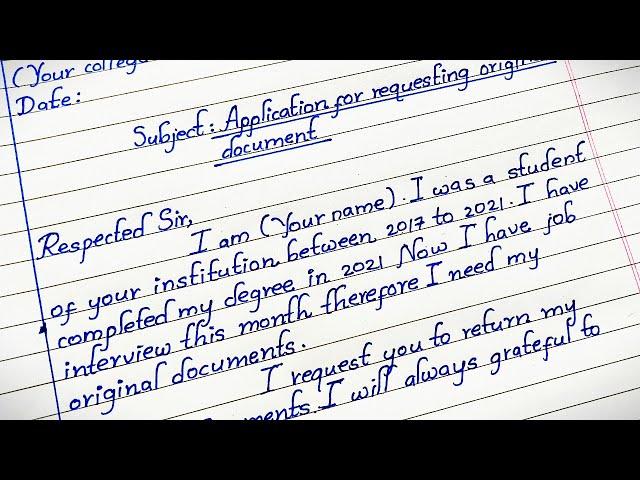 (Your college
Date:
Subject: Application for requesting original
document
Respected Sir,
I am (Your name). I was a student
of your institution between 2017 to 2021. I have
completed my degree in 2021 Now I have job
interview this month therefore I need my
original documents.
I request you to return my
I will always grateful to